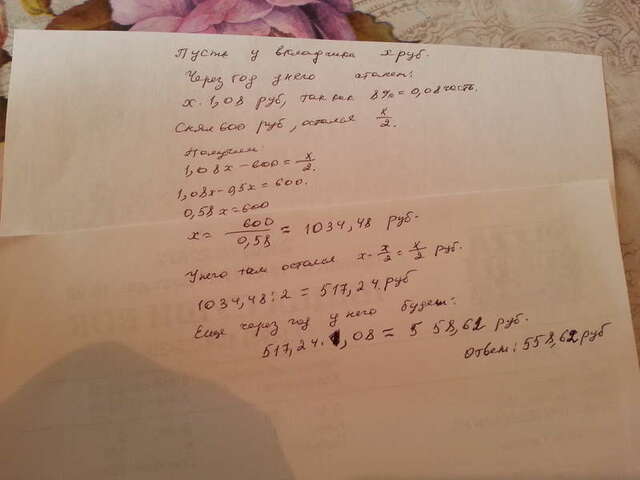 Пусть у вкладчика x руб.
Через год у него станет:
x · 1,08 руб, так как 8% = 0,08 часть.
Снял 600 руб, остался x/2.
Получим:
1,08x - 600 = x/2.
1,08x - 0,5x = 600.
0,58x = 600
x = 600/0,58 = 1034,48 руб.
У него там остался x - x/2 = x/2 руб.
1034,48 : 2 = 517,24 руб
Еще через год у него будет:
517,24 · 1,08 = 558,62 руб.
Ответ: 558,62 руб